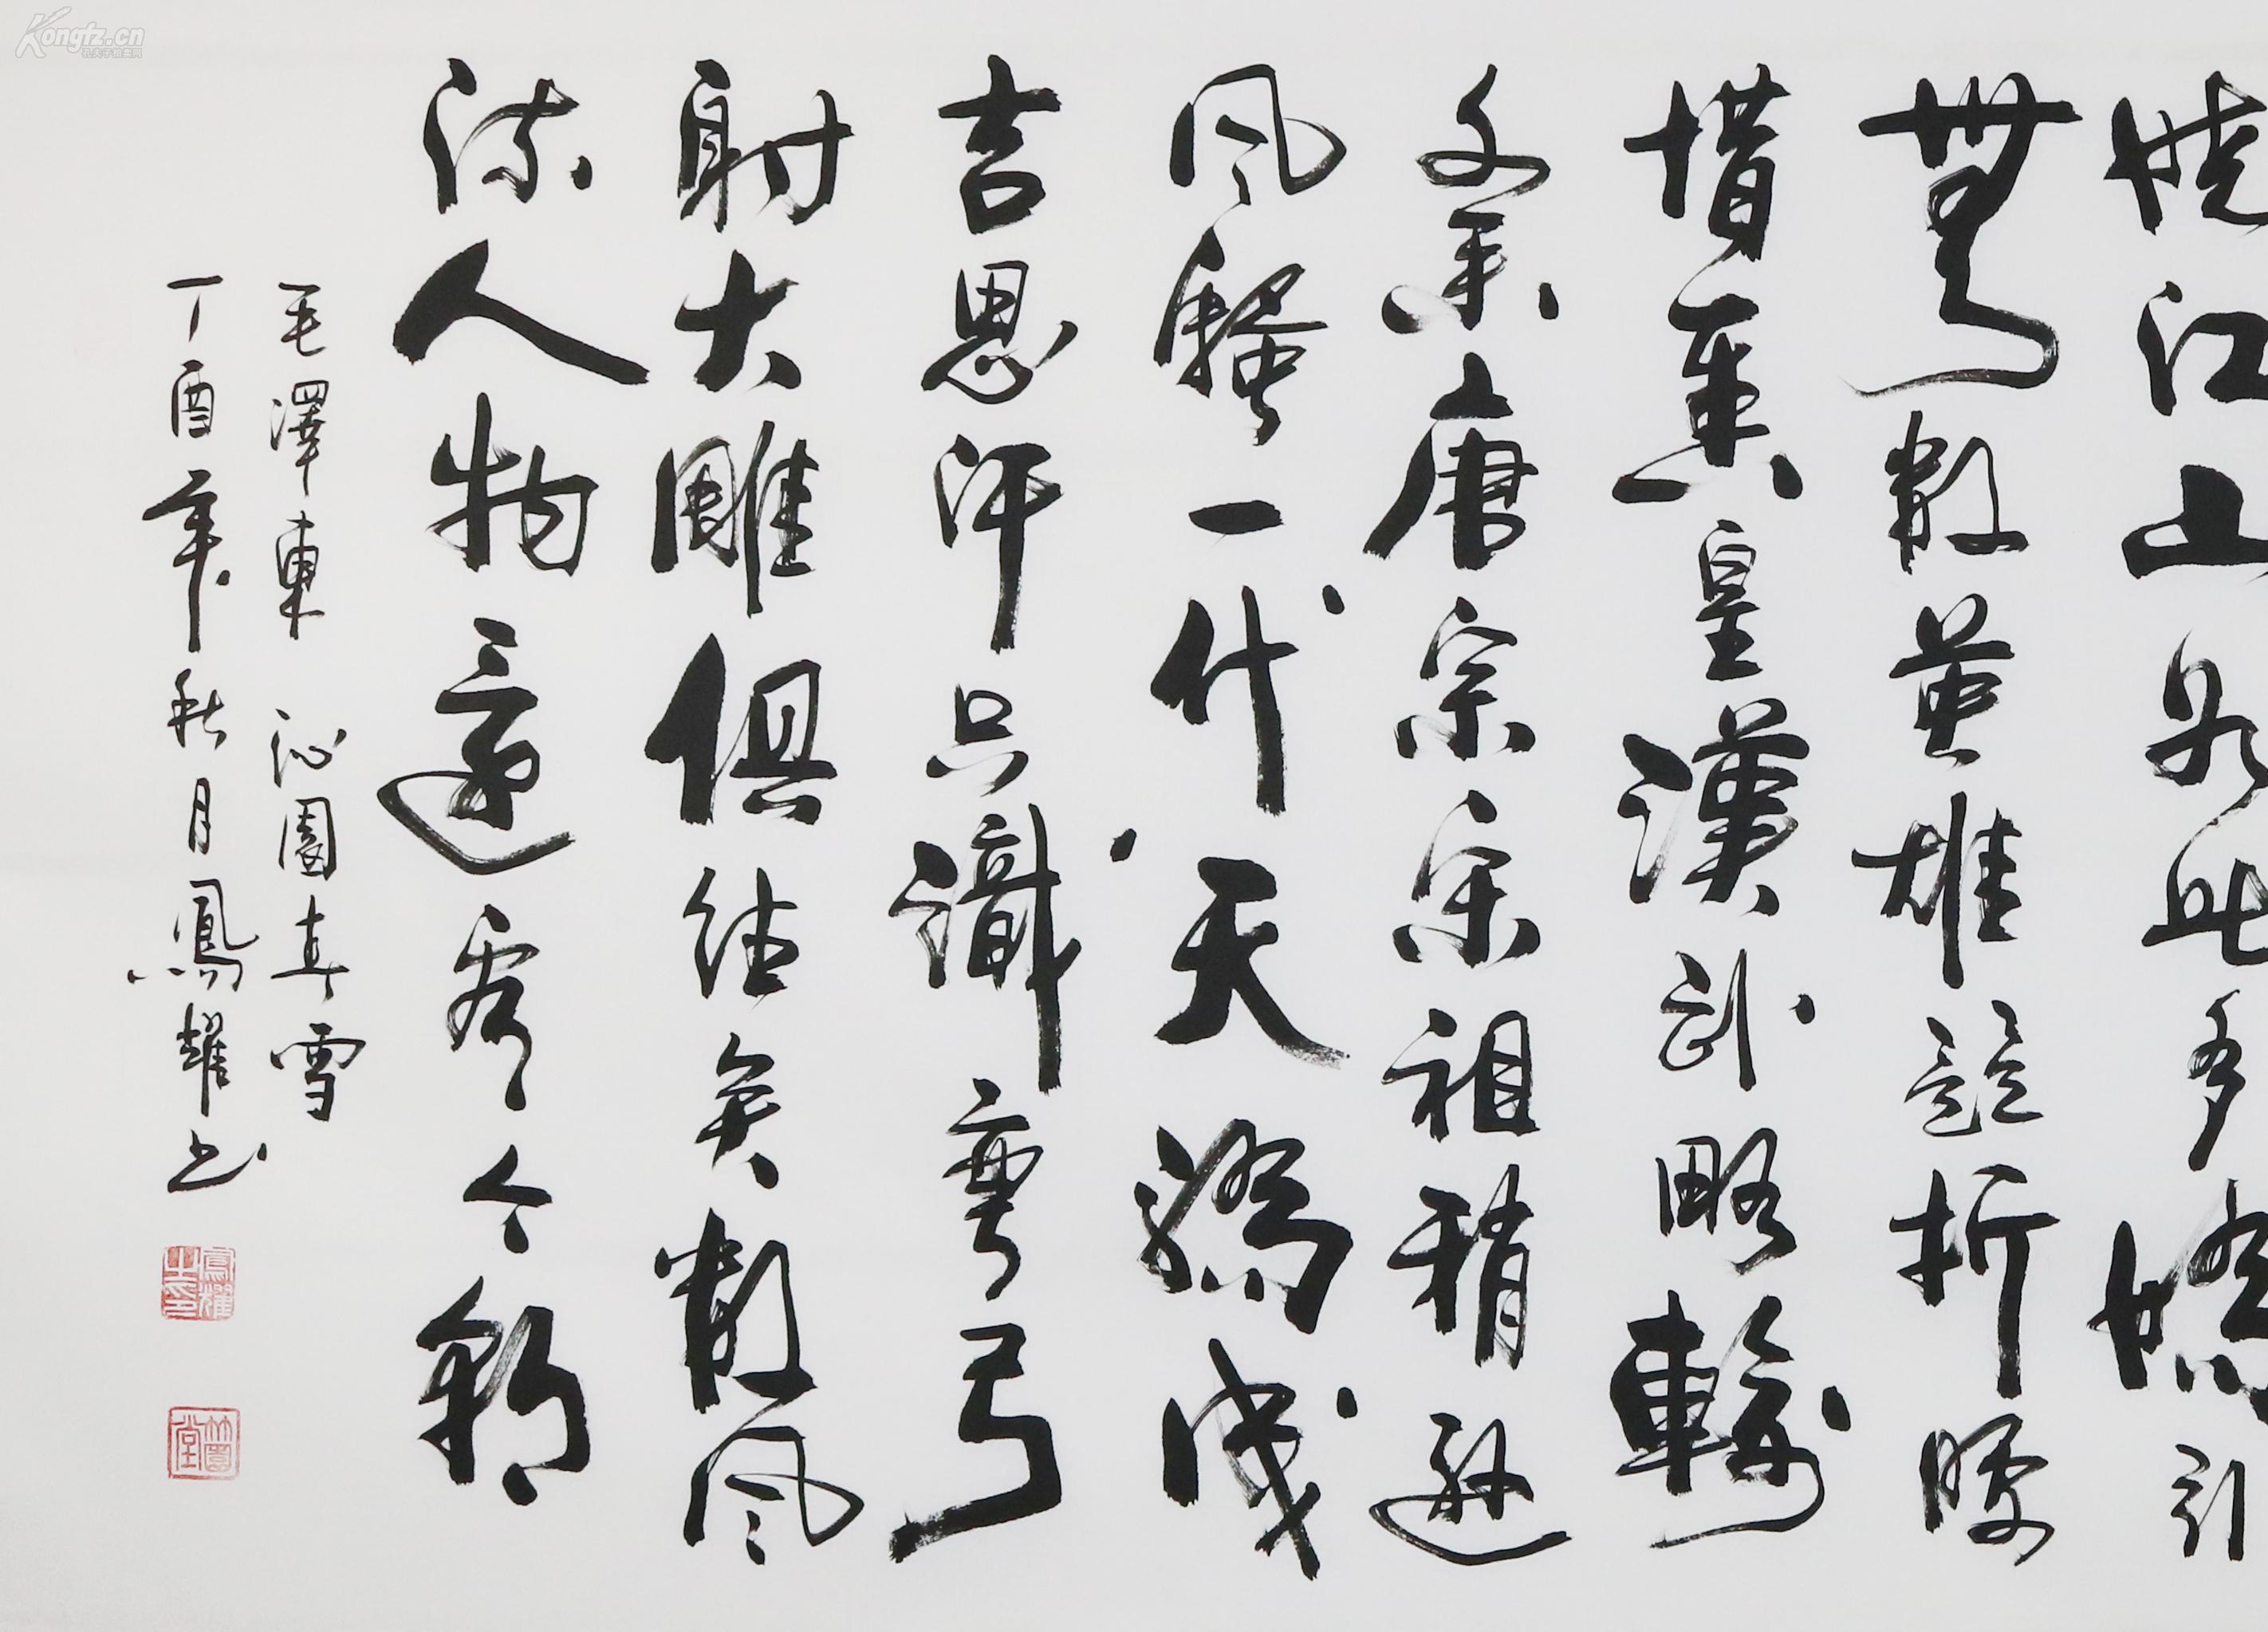 Kongfz.cn
孔夫子拍卖网
娆江山如此多嬌引
無數英雄競折腰
惜秦皇漢武略輸
文采唐宗宋祖稍遜
风騷一代天驕成
吉思汗只識彎弓
射大雕俱往矣數风
流人物還看今朝
毛澤東 沁園春雪
丁酉年秋月鳳耀书
鳳耀之印